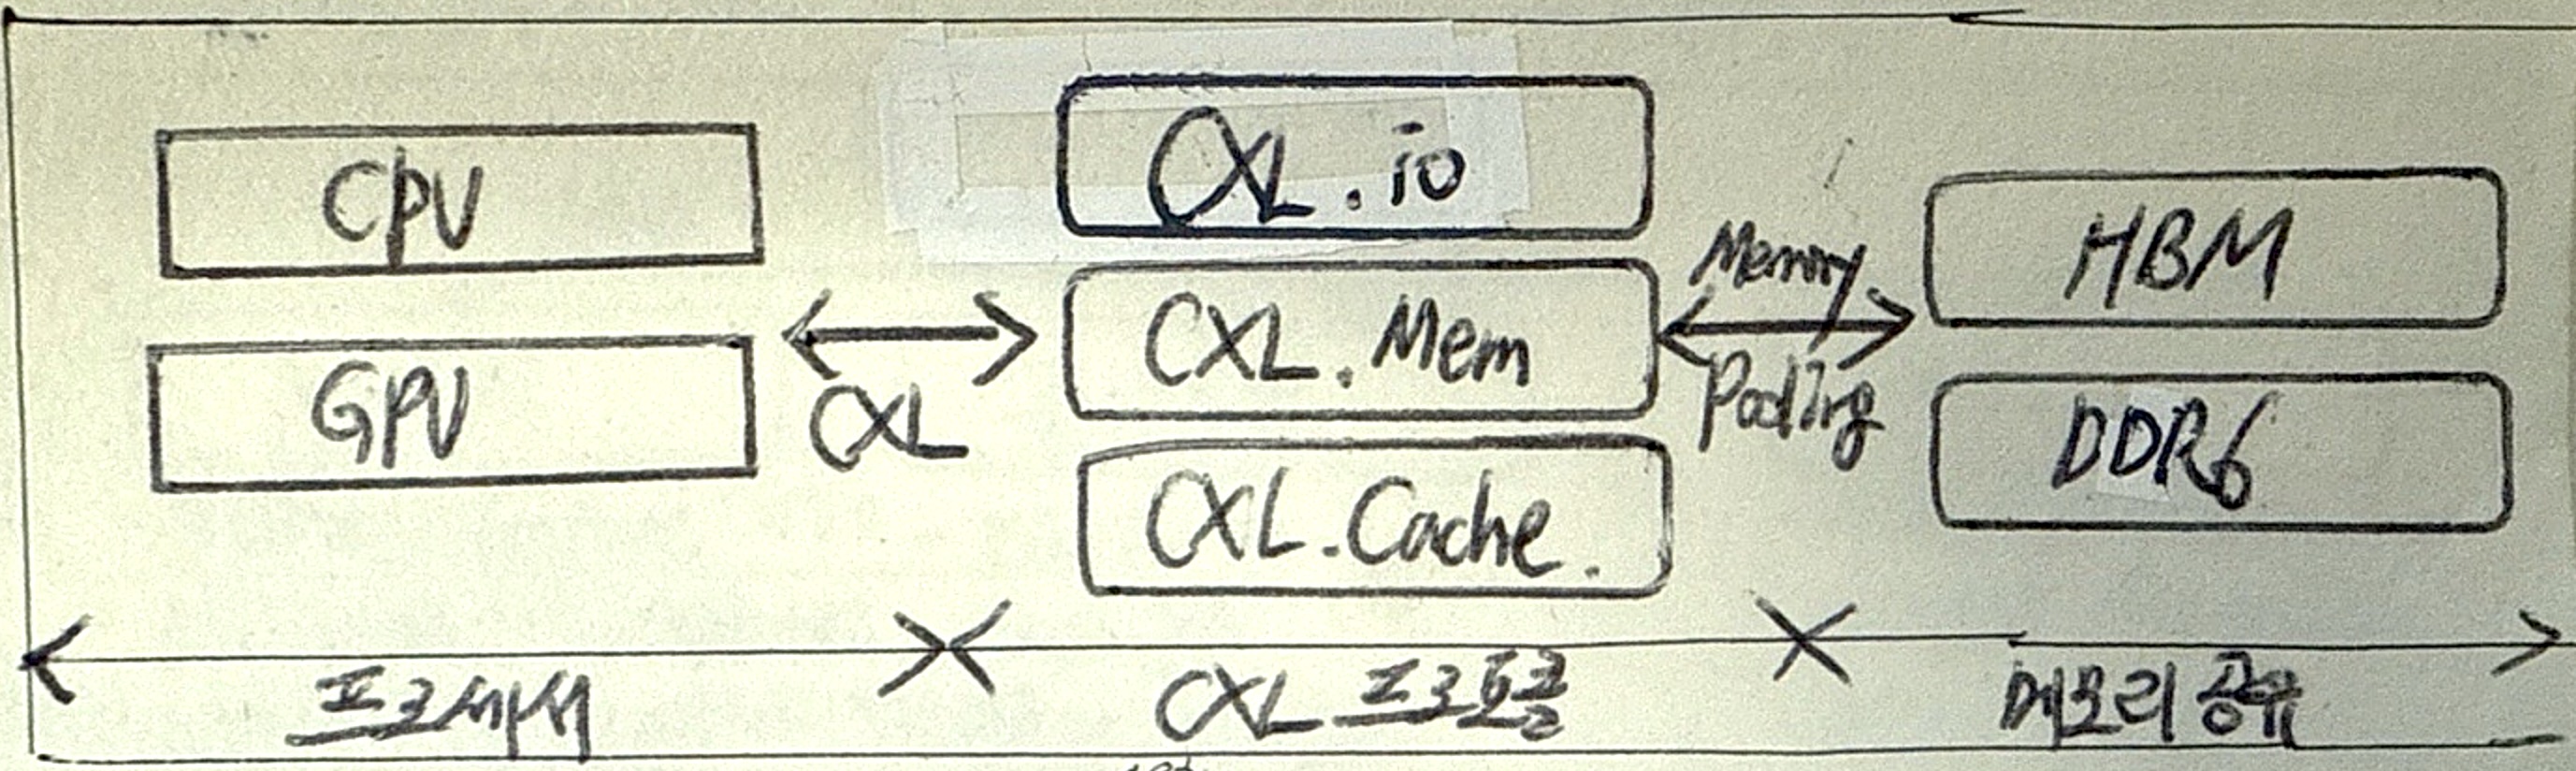 CPU
GPU
CXL
CXL.io
CXL.Mem
CXL.Cache.
Memory
Pooling
HBM
DDR6
프로세서
CXL 프로토콜
메모리 공유